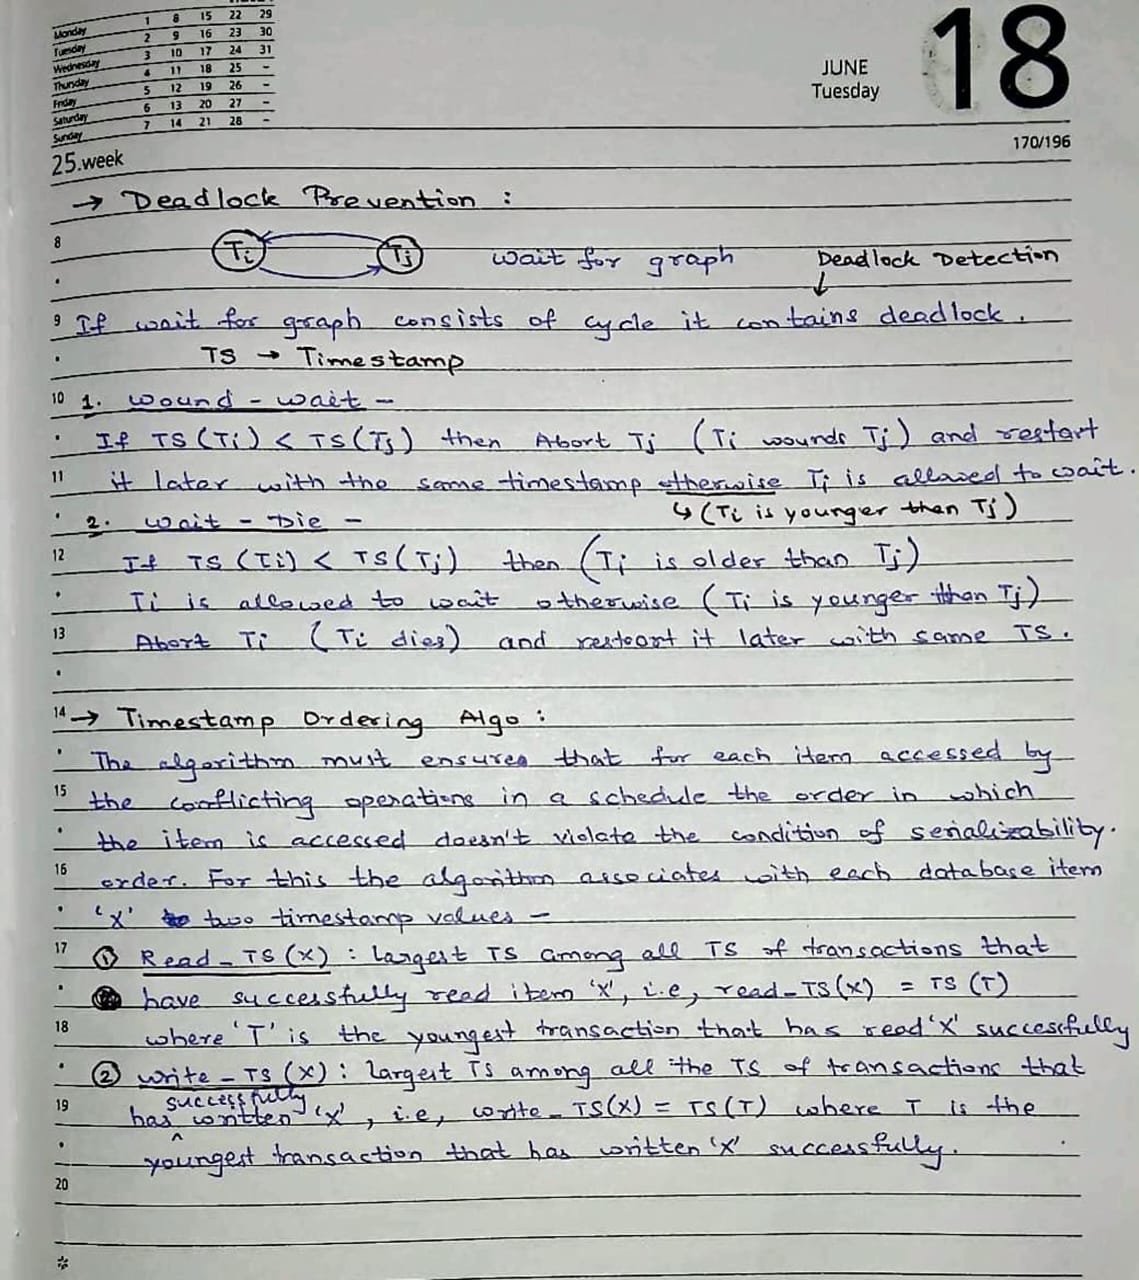 Monday 1 8 15 22 29
Tuesday 2 9 16 23 30
Wednesday 3 10 17 24 31
Thursday 4 11 18 25 -
Friday 5 12 19 26 -
Saturday 6 13 20 27 -
Sunday 7 14 21 28 -
JUNE
Tuesday
18
170/196
25.week
→ Deadlock Prevention :
8 Ti Tj wait for graph Deadlock Detection
9 If wait for graph consists of cycle it contains deadlock.
TS → Timestamp
10 1. wound - wait -
If TS (Ti) < TS (Tj) then Abort Tj (Ti wounds Tj) and restart
11 it later with the same timestamp otherwise Ti is allowed to wait.
↳ (Ti is younger than Tj)
2. wait - Die -
12 If TS (Ti) < TS (Tj) then (Ti is older than Tj)
Ti is allowed to wait otherwise (Ti is younger than Tj)
13 Abort Ti (Ti dies) and resteart it later with same TS.
14 → Timestamp Ordering Algo :
The algorithm must ensures that for each item accessed by
15 the conflicting operations in a schedule the order in which
the item is accessed doesn't violate the condition of serializability.
16 order. For this the algorithm associates with each database item
'X' two timestamp values -
17 ① Read_TS (X) : largest TS among all TS of transactions that
have successfully read item 'X', i.e, read_TS (X) = TS (T)
18 where 'T' is the youngest transaction that has read 'X' successfully
② write_TS (X) : largest TS among all the TS of transactions that
19 has successfully written 'X', i.e, write_TS(X) = TS(T) where T is the
youngest transaction that has written 'X' successfully.
20